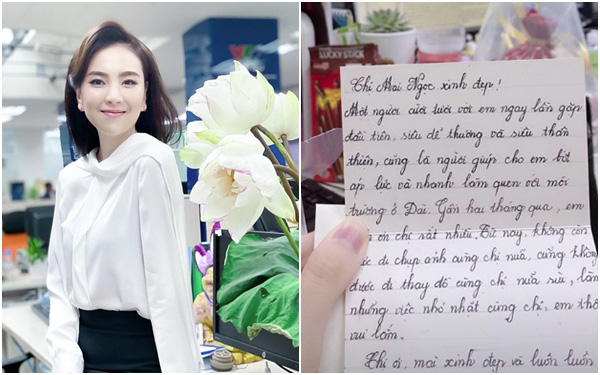 Chị Mai Ngọc xinh đẹp!
Một người cười tươi với em ngay lần gặp
đầu tiên, siêu dễ thương và siêu thân
thiện, cũng là người giúp cho em bớt
áp lực và nhanh làm quen với môi
trường ở Đài. Gần hai tháng qua, em
ơn chị rất nhiều. Từ nay, không còn
được đi chụp ảnh cùng chị nữa, cũng không
được đi thay đồ cùng chị nữa rùi, làm
những việc nhỏ nhất cùng chị, em
vui lắm.
Chị ơi, mãi xinh đẹp và luôn luôn